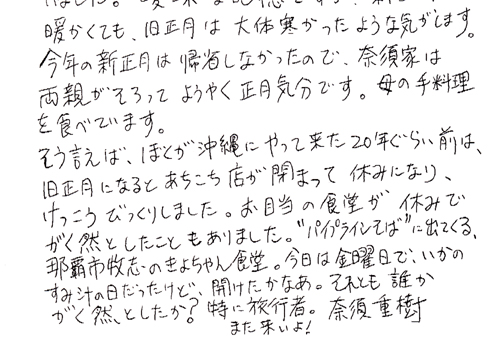 暖かくても、旧正月は大体寒かったような気がします。
今年の新正月は帰省しなかったので、奈須家は
両親がそろってようやく正月気分です。母の手料理
を食べています。
そう言えば、ぼくが沖縄にやって来た20年ぐらい前は、
旧正月になるとあちこち店が閉まって休みになり、
けっこうびっくりしました。お目当の食堂が休みで
がく然としたこともありました。"パイプラインそば"に出てくる、
那覇市牧志のきよちゃん食堂。今日は金曜日で、いかの
すみ汁の日だったけど、開けたかなあ。それとも誰か
がく然、としたか?特に旅行者。奈須重樹
また来いよ!